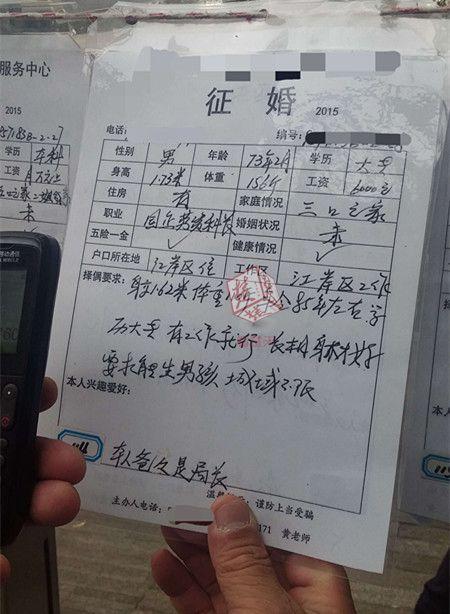 服务中心
2015
学历
本科
工资
征 婚
2015
电话: 编号:
性别 男 年龄 73年2月 学历 大专
身高 1.73米 体重 156斤 工资 6000元
住房 有 家庭情况 三口之家
职业 婚姻状况 未
五险一金 ✓ 健康情况 ✓
户口所在地 江岸区住 工作区 江岸区工作
择偶要求: 1.62米 体重 85年左右 学
历大专 有工作就行 长相身材好
要求能生男孩 城域不限
本人兴趣爱好:
本人爸爸是局长
谨防上当受骗
主办人电话: 171 黄老师